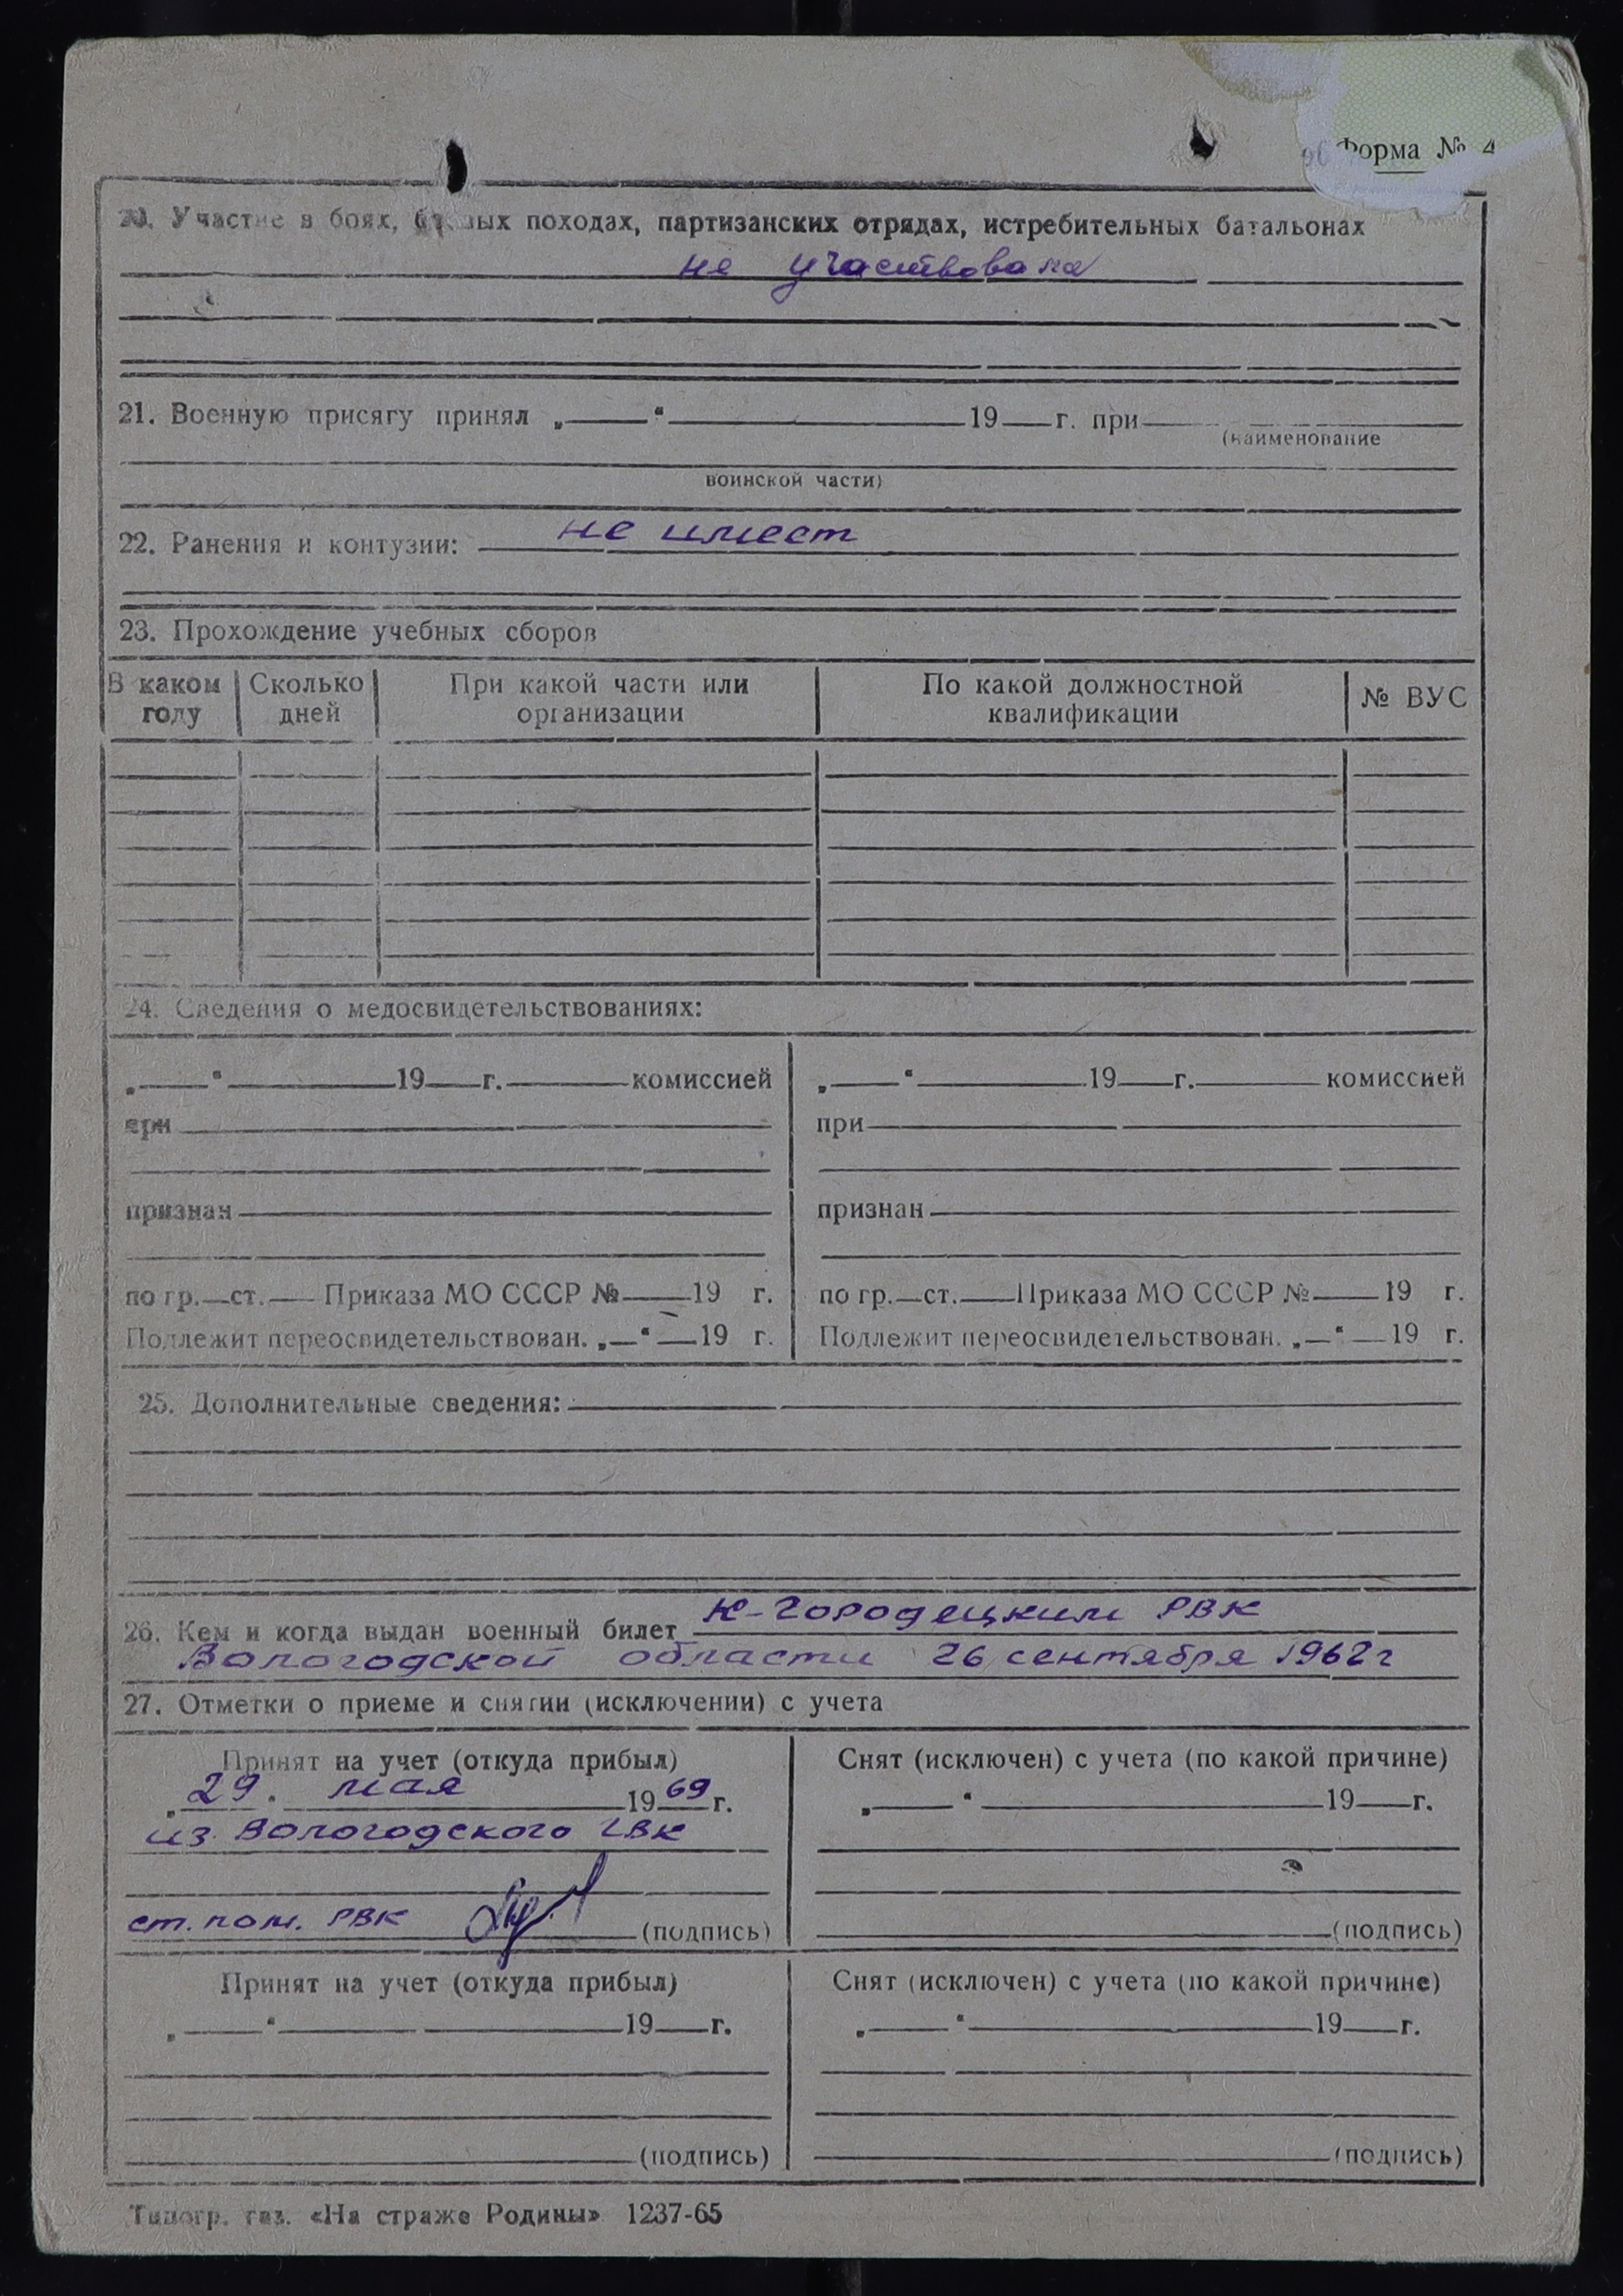 Форма № 4
20. Участие в боях, боевых походах, партизанских отрядах, истребительных батальонах
не участвовала
21. Военную присягу принял „ “ 19 г. при
(наименование
воинской части)
22. Ранения и контузии: не имеет
23. Прохождение учебных сборов
В каком году | Сколько дней | При какой части или организации | По какой должностной квалификации | № ВУС
24. Сведения о медосвидетельствованиях:
„ “ 19 г. комиссией | „ “ 19 г. комиссией
при | при
признан | признан
по гр. ст. Приказа МО СССР № 19 г. | по гр. ст. Приказа МО СССР № 19 г.
Подлежит переосвидетельствован. „ “ 19 г. | Подлежит переосвидетельствован. „ “ 19 г.
25. Дополнительные сведения:
26. Кем и когда выдан военный билет К-Городецким РВК
Вологодской области 26 сентября 1962 г
27. Отметки о приеме и снятии (исключении) с учета
Принят на учет (откуда прибыл) | Снят (исключен) с учета (по какой причине)
„29“ мая 1969 г. | „ “ 19 г.
из Вологодского ГВК
ст. пом. РВК (подпись) | (подпись)
Принят на учет (откуда прибыл) | Снят (исключен) с учета (по какой причине)
„ “ 19 г. | „ “ 19 г.
(подпись) | (подпись)
Типогр. газ. «На страже Родины» 1237-65